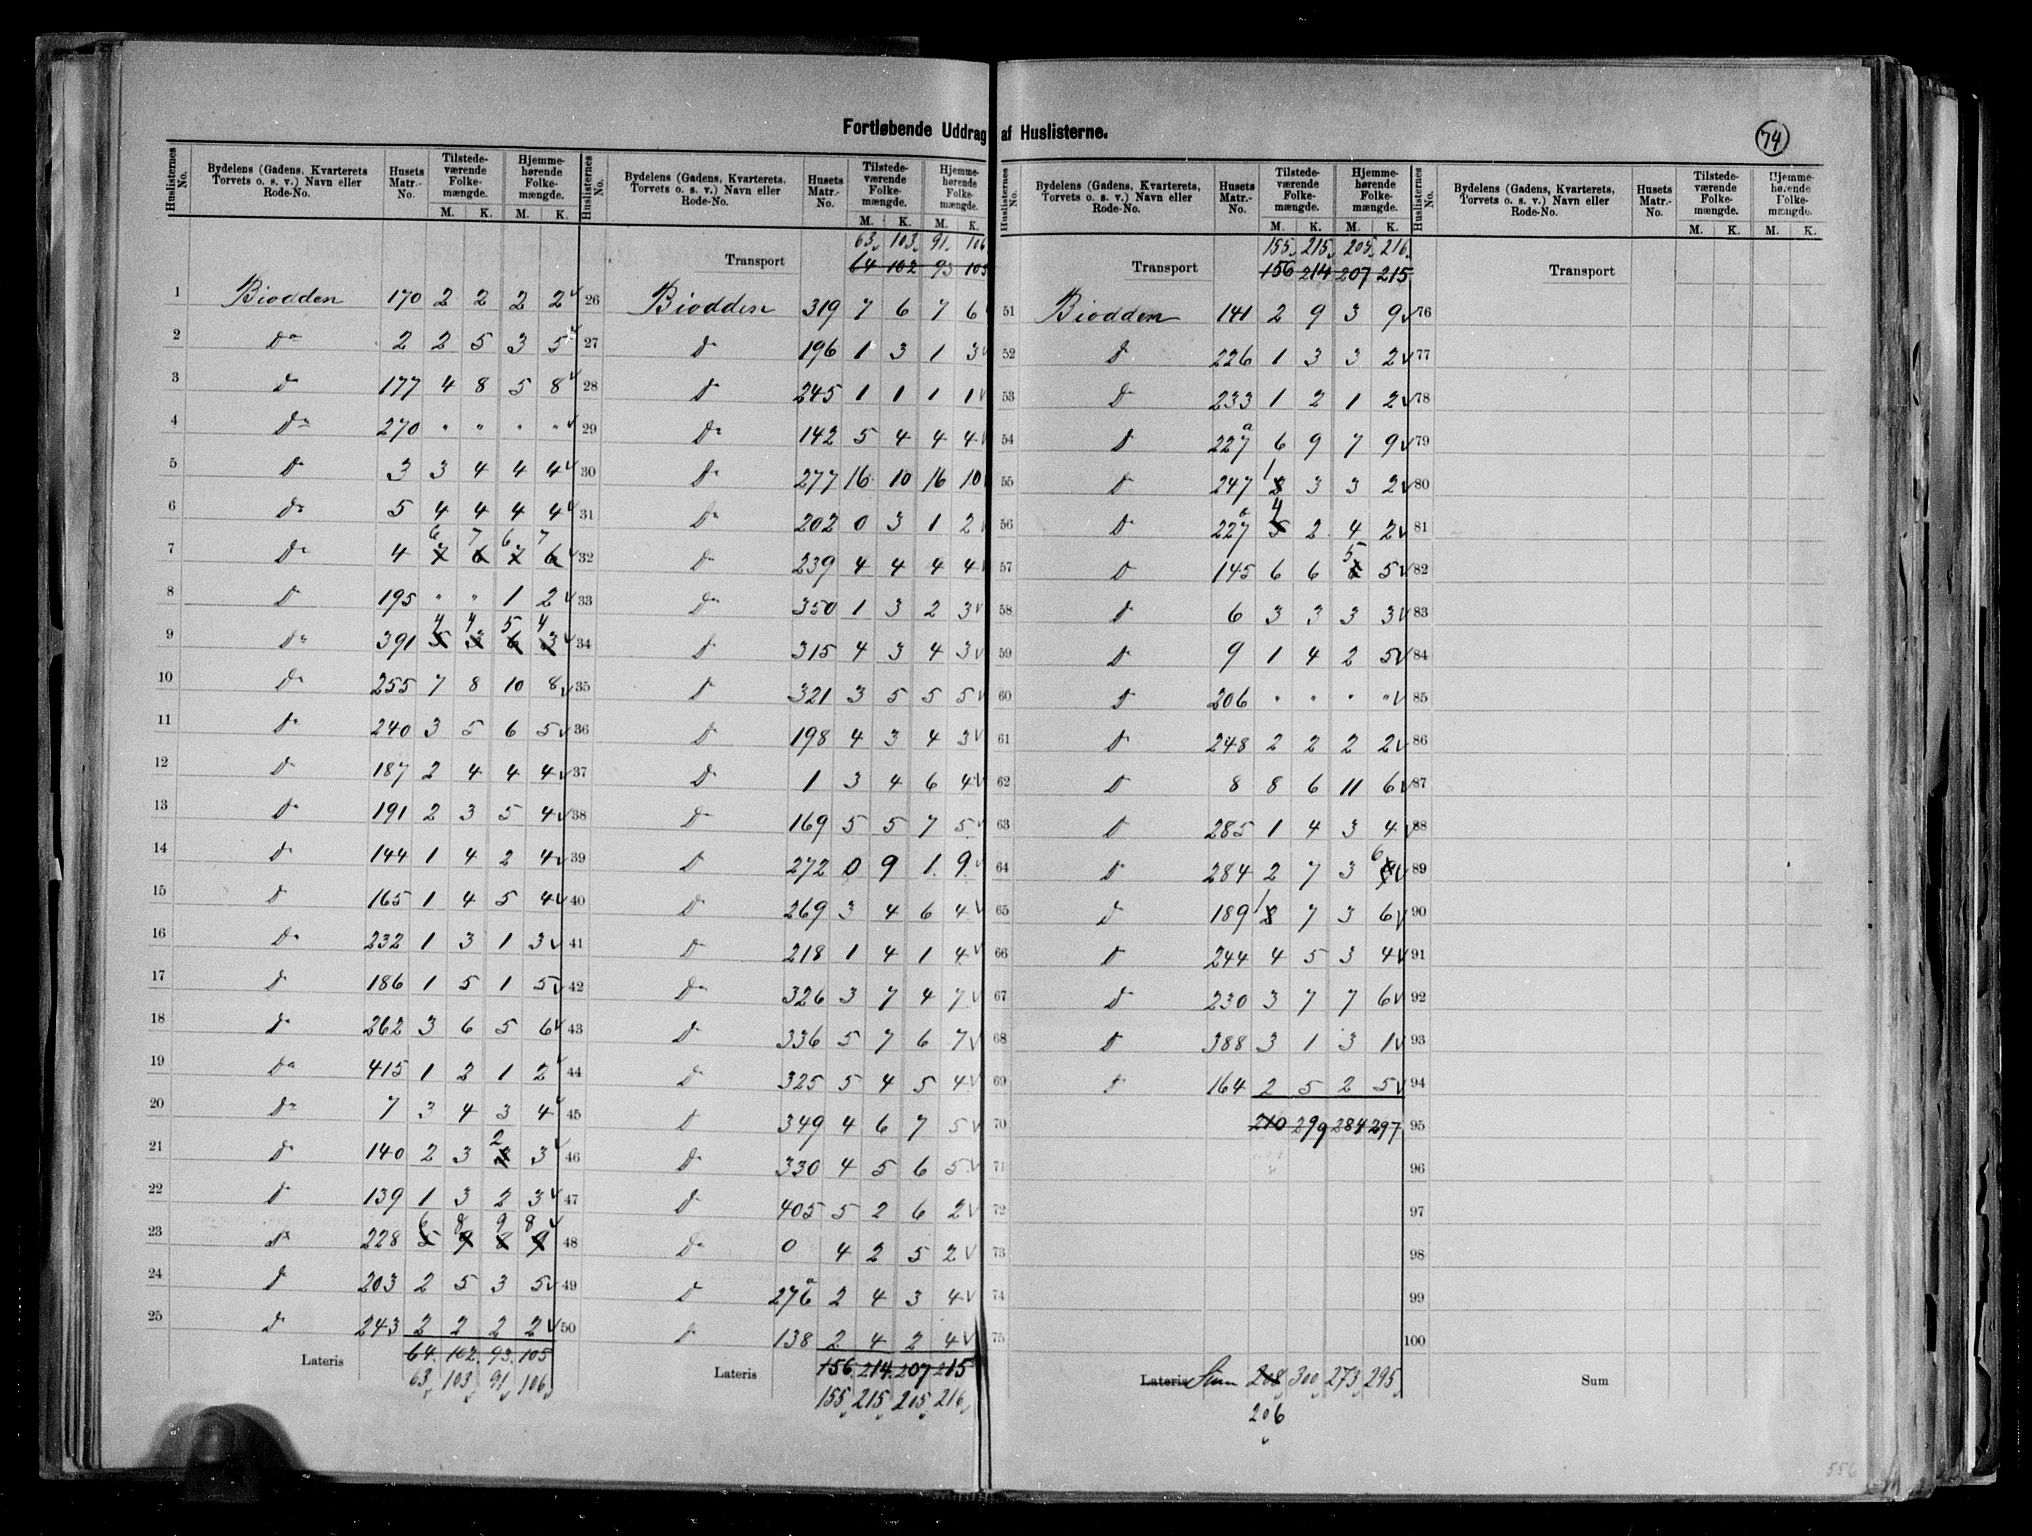 Fortløbende Uddrag af Huslisterne.
74
Huslisternes No. Bydelens (Gadens, Kvarterets Torvets o. s. v.) Navn eller Rode-No. Husets Matr.-No. Tilstedeværende Folkemængde. M. K. Hjemmehørende Folkemængde. M. K.
1 Biodden 170 2 2 2 2
2 Do 2 2 5 3 5
3 Do 177 4 8 5 8
4 Do 270 " " " "
5 D 3 3 4 4 4
6 Do 5 4 4 4 4
6 7 6 7
7 Do 4 7 6 7 6
8 D 195 " " 1 2
4 4 5 4
9 Do 391 5 3 6 3
10 Do 255 7 8 10 8
11 Do 240 3 5 6 5
12 D 187 2 4 4 4
13 D 191 2 3 5 4
14 D 144 1 4 2 4
15 D 165 1 4 5 4
16 Do 232 1 3 1 3
17 D 186 1 5 1 5
18 D 262 3 6 5 6
19 Do 415 1 2 1 2
20 Do 7 3 4 3 4
21 D 140 2 3 2 3
22 D 139 1 3 2 3
6 8 9 8
23 Do 228 5 9 8 9
24 D 203 2 5 3 5
25 D 243 2 2 2 2
Lateris 64 102 93 105
63 103 91 106
Huslisternes No. Bydelens (Gadens, Kvarterets. Torvets o. s. v.) Navn eller Rode-No. Husets Matr.-No. Tilstedeværende Folkemængde. M. K. Hjemmehørende Folkemængde. M. K.
63 103 91 106
Transport 64 102 93 105
26 Biodden 319 7 6 7 6
27 D 196 1 3 1 3
28 D 245 1 1 1 1
29 Do 142 5 4 4 4
30 D 277 16 10 16 10
31 Do 202 0 3 1 2
32 D 239 4 4 4 4
33 Do 350 1 3 2 3
34 D 315 4 3 4 3
35 D 321 3 5 5 5
36 D 198 4 3 4 3
37 D 1 3 4 6 4
38 D 169 5 5 7 5
39 D 272 0 9 1 9
40 D 269 3 4 6 4
41 D 218 1 4 1 4
42 Do 326 3 7 4 7
43 D 336 5 7 6 7
44 D 325 5 4 5 4
45 D 349 4 6 7 5
46 D 330 4 5 6 5
47 D 405 5 2 6 2
48 Do 0 4 2 5 2
49 D 276a 2 4 3 4
50 D 138 2 4 2 4
Lateris 156 214 207 215
155 215 205 216
Huslisternes No. Bydelens (Gadens, Kvarterets, Torvets o. s. v.) Navn eller Rode-No. Husets Matr.-No. Tilstedeværende Folkemængde. M. K. Hjemmehørende Folkemængde. M. K.
155 215 205 216
Transport 156 214 207 215
51 Biodden 141 2 9 3 9
52 D 226 1 3 3 2
53 D 233 1 2 1 2
54 D 227a 6 9 7 9
55 D 247 1 3 3 2
56 D 227 4 5 2 4 2
57 D 145 6 6 5 5
58 D 6 3 3 3 3
59 D 9 1 4 2 5
60 D 206 " " " "
61 D 248 2 2 2 2
62 D 8 8 6 11 6
63 D 285 1 4 3 4
64 D 284 2 7 3 6
65 D 189 1 7 3 6
66 D 244 4 5 3 4
67 D 230 3 7 7 6
68 D 388 3 1 3 1
69 D 164 2 5 2 5
70 210 299 284 297
71
72
73
74
75
Lateris Sum 208 300 273 295
206
Huslisternes No. Bydelens (Gadens, Kvarterets, Torvets o. s. v.) Navn eller Rode-No. Husets Matr.-No. Tilstedeværende Folkemængde. M. K. Hjemmehørende Folkemængde. M. K.
Transport
76
77
78
79
80
81
82
83
84
85
86
87
88
89
90
91
92
93
94
95
96
97
98
99
100
Sum
556